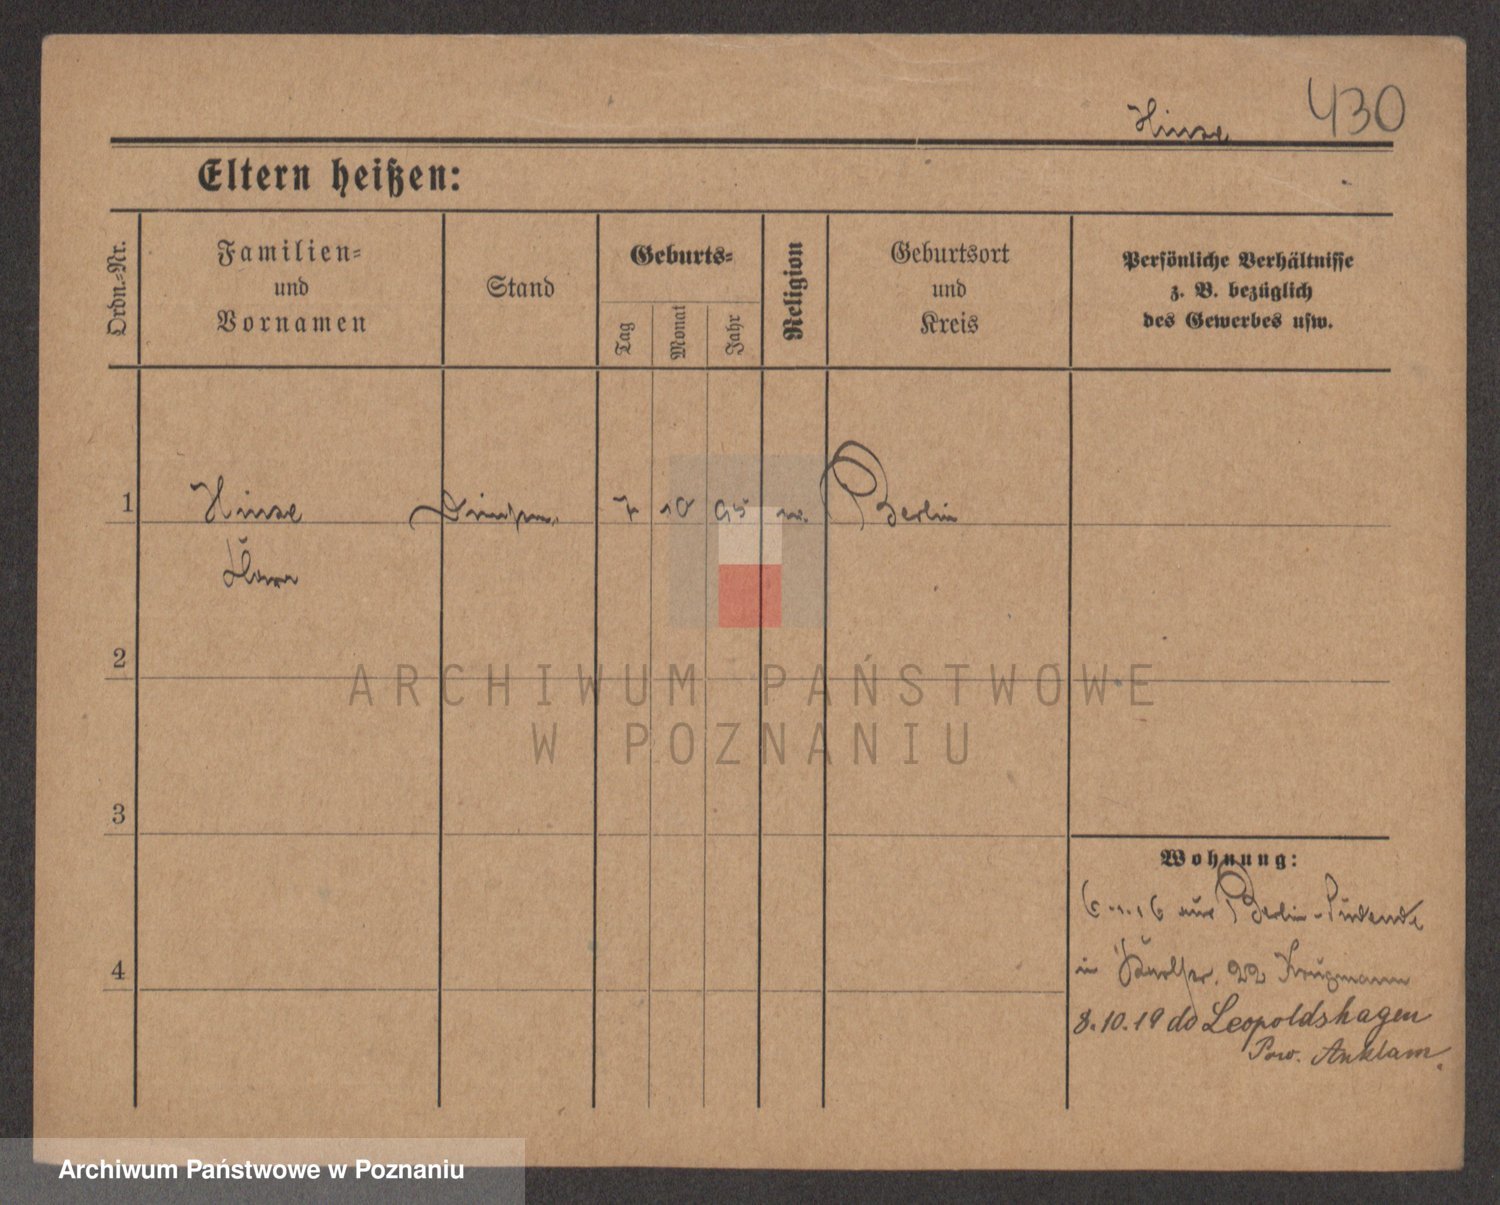 Hinze 430
Eltern heißen:
Ordn.-Nr.
Familien-
und
Vornamen
Stand
Geburts-
Tag
Monat
Jahr
Religion
Geburtsort
und
Kreis
Persönliche Verhältnisse
z. B. bezüglich
des Gewerbes usw.
1 Hinze 7 10 95 Berlin
2
3
4
ARCHIWUM PAŃSTWOWE
W POZNANIU
Wohnung:
6.1.16 aus Berlin-Südende
in Karlstr. 22 Krugmann
8.10.19 do Leopoldshagen
Pow. Anklam.
Archiwum Państwowe w Poznaniu